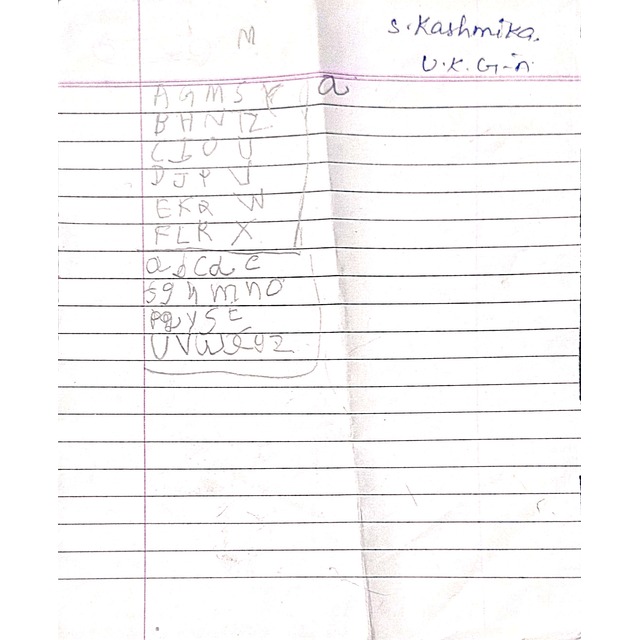 M
S. Kashmika.
U.K.G-n.
a
A G M S Y
B H N Z
C I O U
D J P V
E K Q W
F L R X
a b c d e
5 g h m n o
p q y s t
U V W x y z